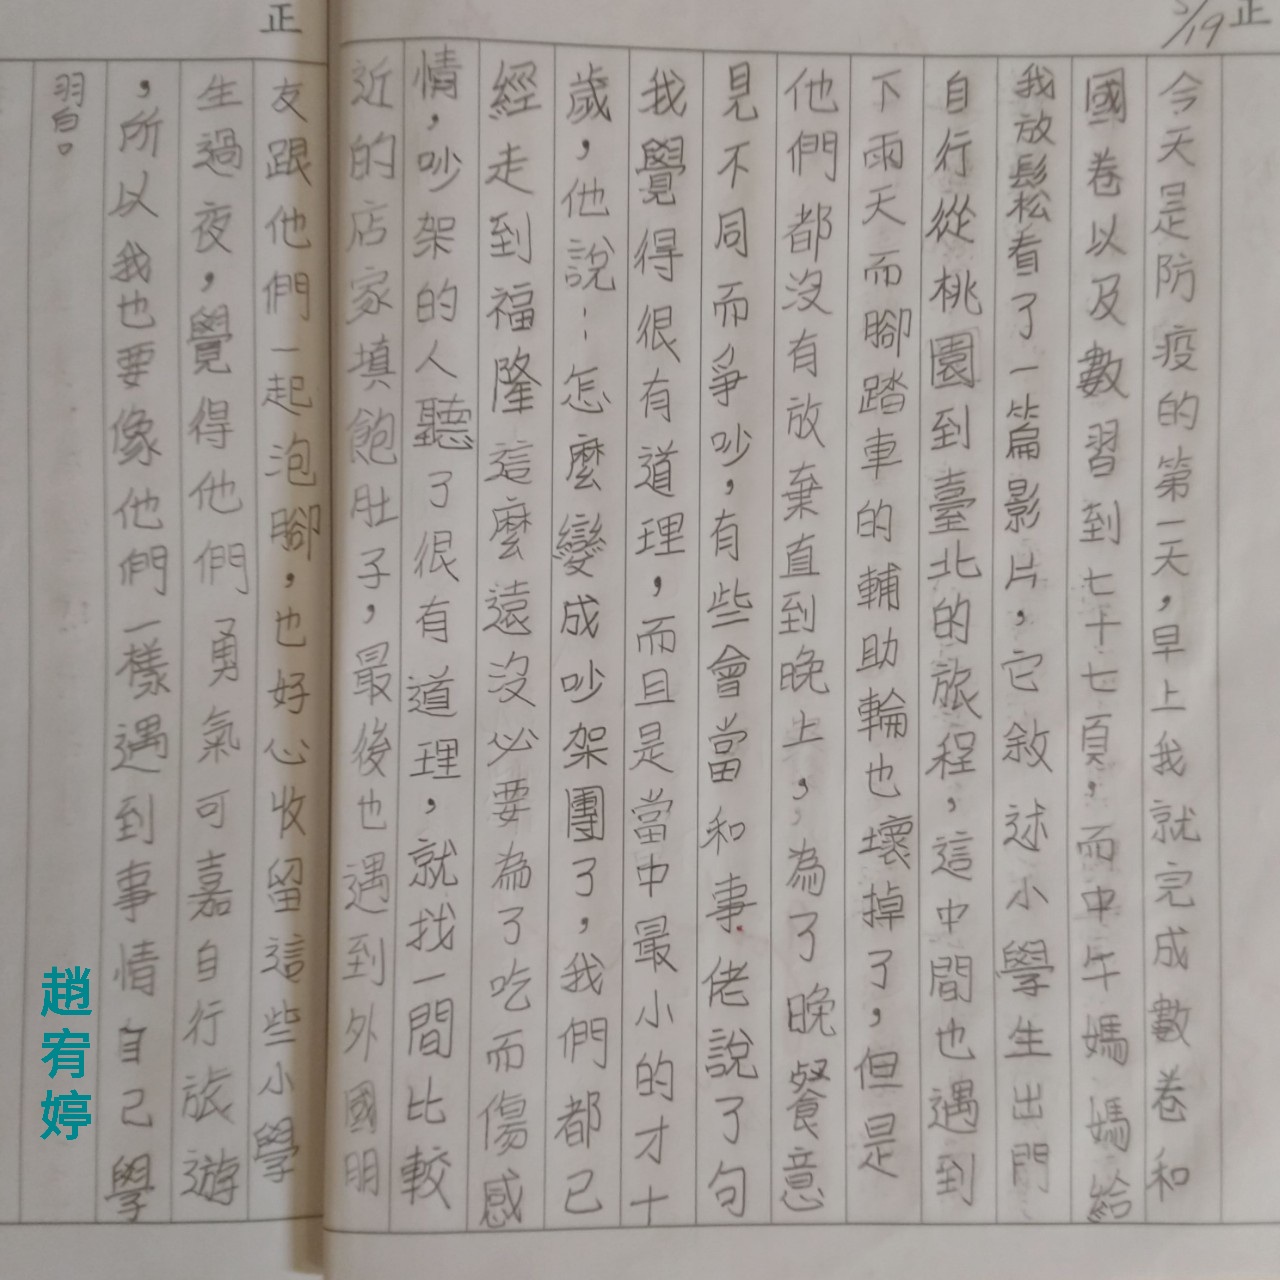 5/19
正
今天是防疫的第一天，早上我就完成數卷和
國卷以及數習到七十七頁，而中午媽媽給
我放鬆看了一篇影片，它敘述小學生出門
自行從桃園到臺北的旅程，這中間也遇到
下雨天而腳踏車的輔助輪也壞掉了，但是
他們都沒有放棄直到晚上，為了晚餐意
見不同而爭吵，有些會當和事佬說了句
我覺得很有道理，而且是當中最小的才十
歲，他說：怎麼變成吵架團了，我們都已
經走到福隆這麼遠沒必要為了吃而傷感
情，吵架的人聽了很有道理，就找一間比較
近的店家填飽肚子，最後也遇到外國朋
正
友跟他們一起泡腳，也好心收留這些小學
生過夜，覺得他們勇氣可嘉自行旅遊
，所以我也要像他們一樣遇到事情自己學
習。
趙宥婷